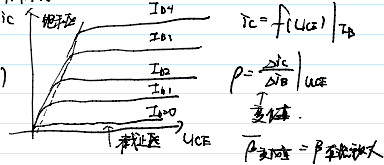 ic
饱和区
IB4
IB3
IB2
IB1
IB=0
截止区
UCE
)
ic = f(UCE) | IB
β = Δic / ΔiB | UCE
变化率.